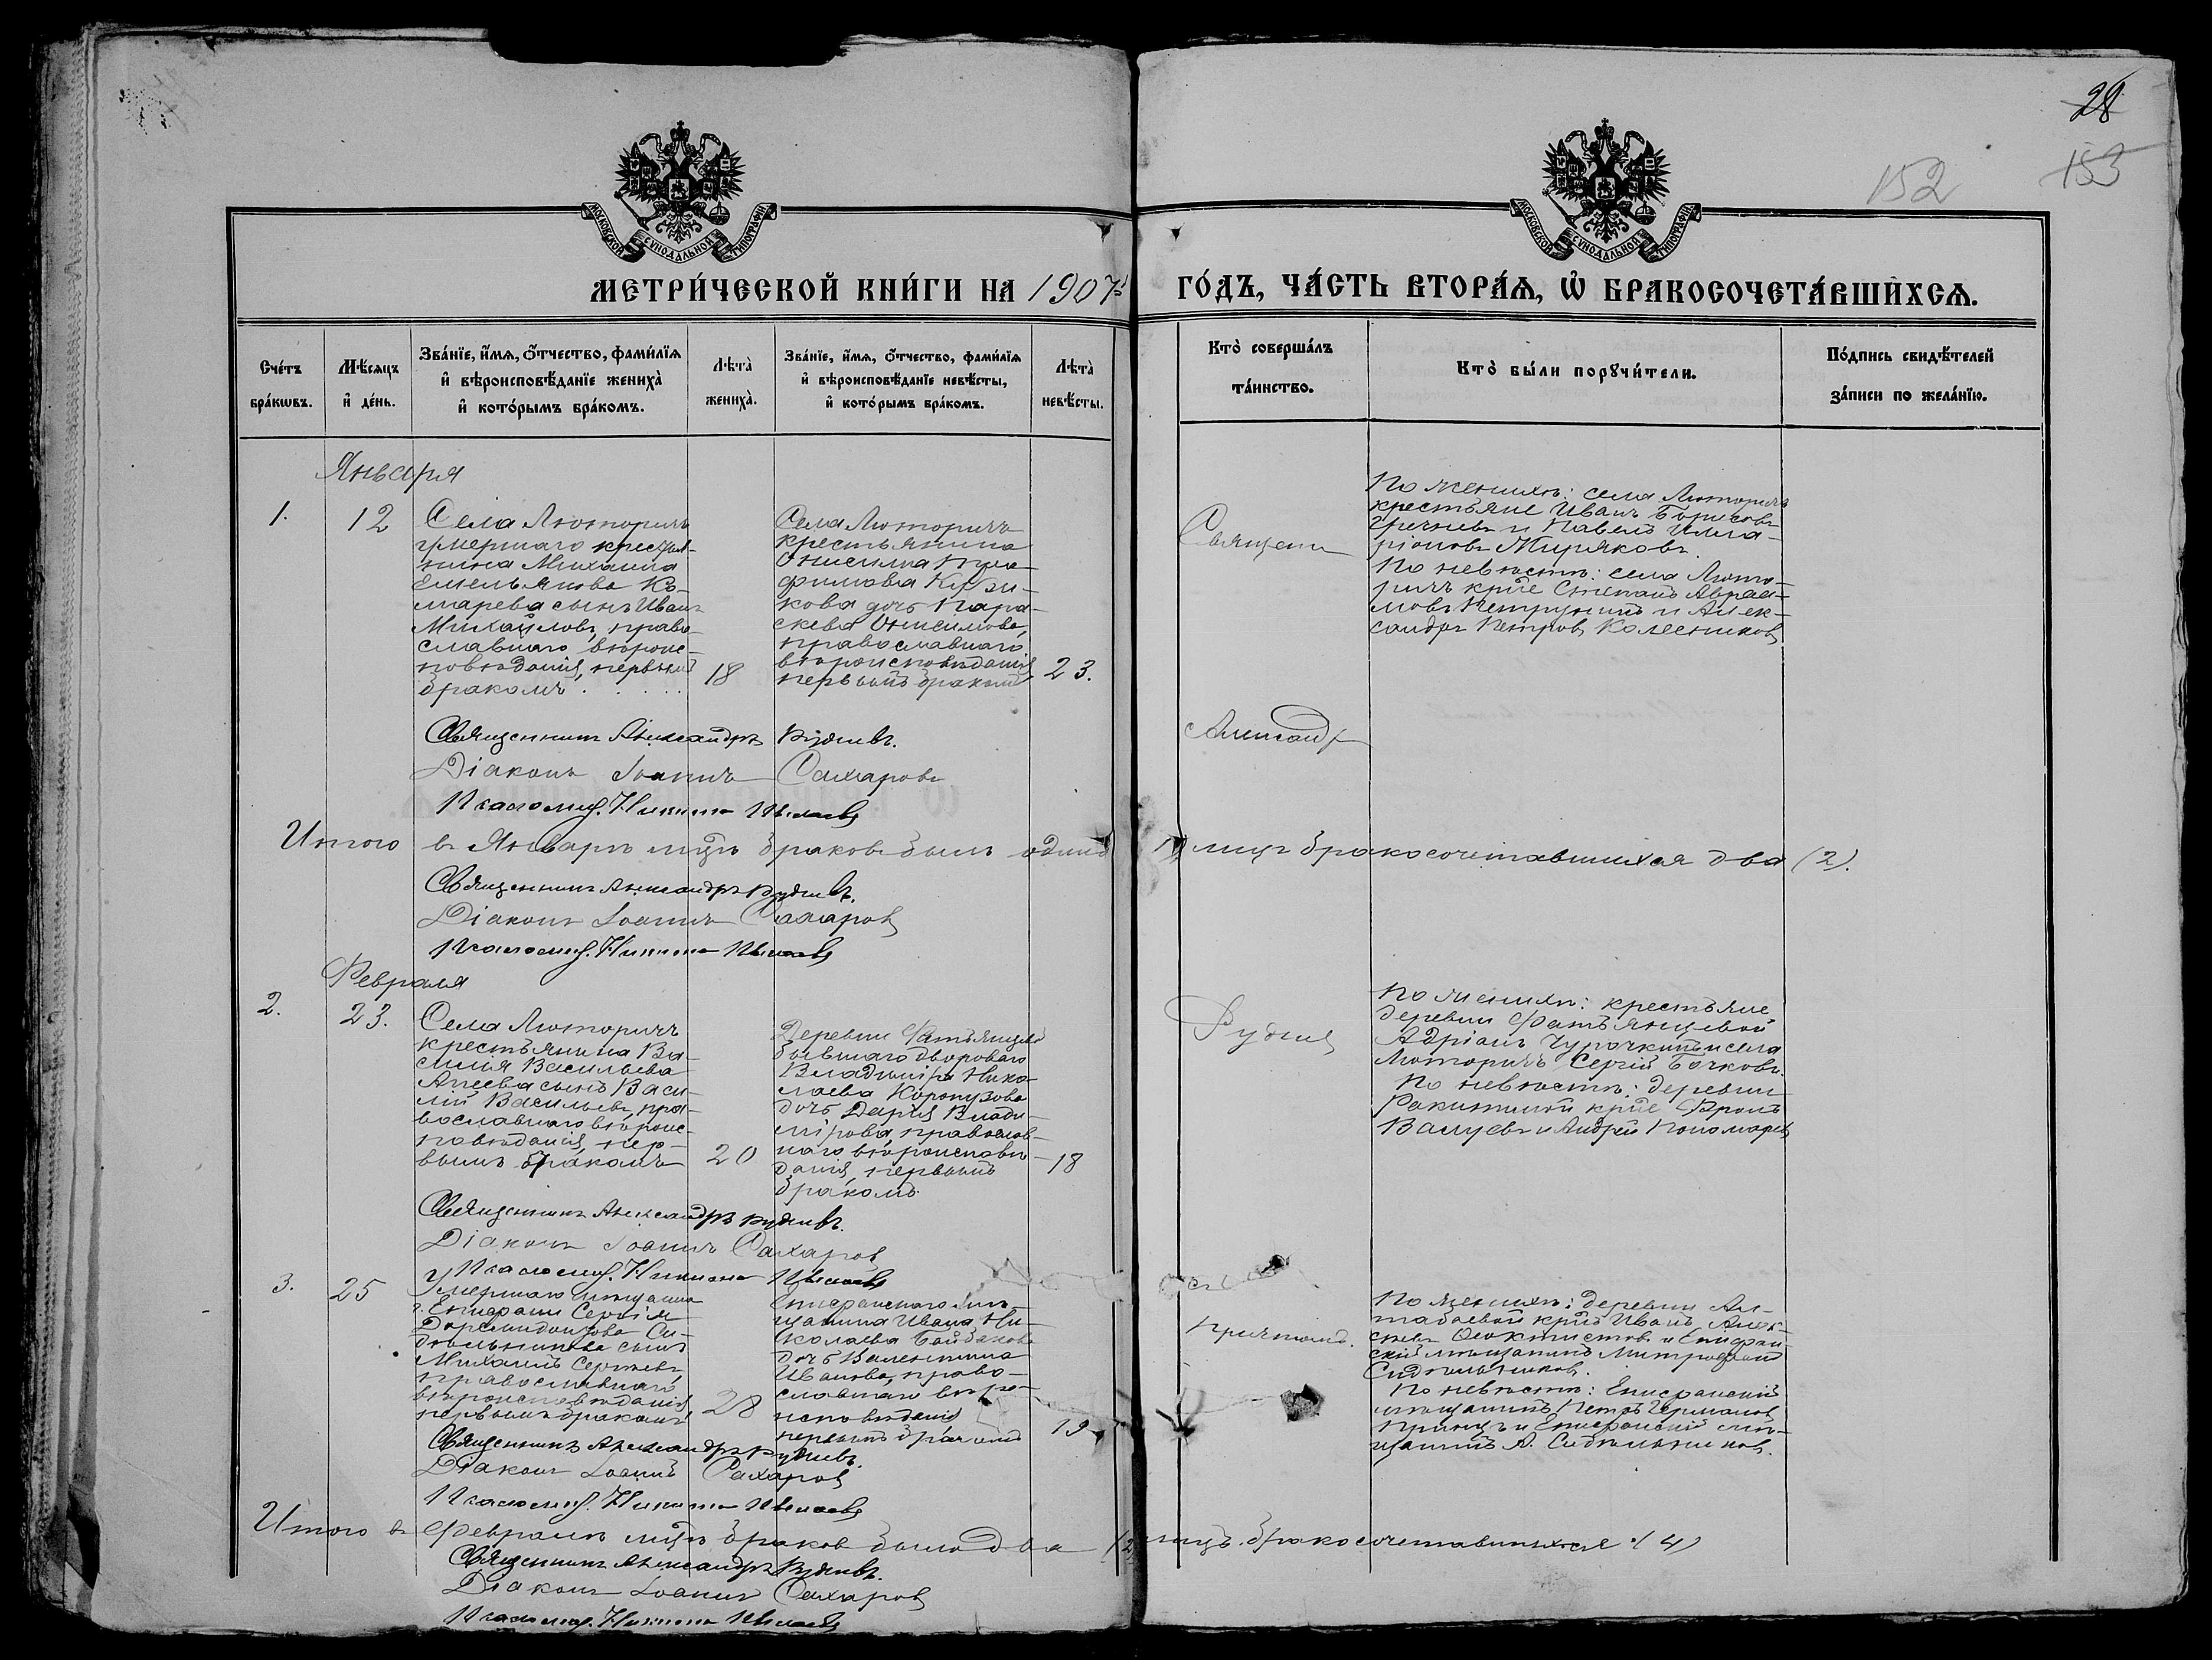 28
152
153
МОСКОВСКОЙ СѴНОДАЛЬНОЙ ТИПОГРАФІИ
МОСКОВСКОЙ СѴНОДАЛЬНОЙ ТИПОГРАФІИ
МЕТРИ́ЧЕСКОЙ КНИ́ГИ НА 1907й
ГО́ДЪ, ЧА́СТЬ ВТОРА́Ѧ, Ѡ҆ БРАКОСОЧЕТА́ВШИХСѦ.
Сче́тъ бра́кѡвъ.
Мѣ́сяцъ и҆ де́нь.
Зва́нїе, и҆́мѧ, ѻ҆́тчество, фами́лїѧ
и҆ вѣроисповѣ́данїе жениха̀
и҆ кото́рымъ бра́комъ.
Лѣта̀ жениха̀.
Зва́нїе, и҆́мѧ, ѻ҆́тчество, фами́лїѧ
и҆ вѣроисповѣ́данїе невѣ́сты,
и҆ кото́рымъ бра́комъ.
Лѣта̀ невѣ́сты.
Кто̀ соверша́лъ
та́инство.
Кто̀ бы́ли порꙋчи́тели.
По́дпись свидѣ́телей
за́писи по жела́нїю.
Января
1.
12
Села Люторичъ
умершаго крестья-
нина Михаила
Емельянова Ко-
марева сынъ Иванъ
Михайловъ, право-
славнаго вѣроис-
повѣданія, первымъ
бракомъ . . . . .
18
Села Люторичъ
крестьянина
Онисима
дочь Пара-
скева Онисимова,
православнаго
вѣроисповѣданія
первымъ бракомъ
23.
Священн
По женихѣ: села Люторичъ
крестьяне Иванъ Борисовъ
Гречневъ и Павелъ Илла-
ріоновъ Жиряковъ.
По невѣстѣ: села Люто-
ричъ кр̃не Степанъ Авраа-
мовъ Петрунинъ и Алек-
сандръ Петровъ Колесниковъ
Священникъ Александръ Рудневъ.
Діаконъ Іоаннъ Сахаровъ
Псаломщ. Никита
Александръ
Итого въ Январѣ мцѣ браковъ былъ одинъ
лицъ бракосочетавшихся два (2).
Священникъ Александръ Рудневъ.
Діаконъ Іоаннъ Сахаровъ
Псаломщ. Никита
Февраля
2.
23.
Села Люторичъ
крестьянина Ва-
силія Васильева
Агеева сынъ Васи-
лій Васильевъ, пра-
вославнаго вѣроис-
повѣданія, пер-
вымъ бракомъ
20
Деревни Фатьянцевой
бывшаго двороваго
Владиміра Нико-
лаева Корпузова
дочь Дарія Влади-
мірова, православ-
наго вѣроисповѣ-
данія, первымъ
бракомъ.
18
Рудневъ
По женихѣ: крестьяне
деревни Фатьянцевой
Адріанъ Чурочкинъ и села
Люторичъ Сергій Бочковъ.
По невѣстѣ: деревни
Ракитиной кр̃не Фролъ
Валуевъ и Андрей Пономаревъ
Священникъ Александръ Рудневъ.
Діаконъ Іоаннъ Сахаровъ
Псаломщ. Никита
3.
25
Умершаго мѣщанина
г. Епифани Сергія
Сы-
дѣльникова сынъ
Михаилъ Сергѣевъ,
православнаго
вѣроисповѣданія
первымъ бракомъ
28
Епифанскаго мѣ-
щанина Ивана Ни-
колаева Байбакова
дочь Валентина
Иванова, право-
славнаго вѣро-
исповѣданія
первымъ бракомъ
19
съ
причтомъ.
По женихѣ: деревни Ал-
табаевой кр̃нъ Иванъ Алек-
сѣевъ Ѳеоктистовъ и Епифан-
скій мѣщанинъ Митрофанъ
Сидѣльниковъ.
По невѣстѣ: Епифанскій
мѣщанинъ Петръ Германовъ
Принцъ и Епифанскій мѣ-
щанинъ А. Сидѣльниковъ.
Священникъ Александръ Рудневъ.
Діаконъ Іоаннъ Сахаровъ
Псаломщ. Никита
Итого въ Февралѣ мцѣ браковъ было два (2)
лицъ бракосочетавшихся (4)
Священникъ Александръ Рудневъ.
Діаконъ Іоаннъ Сахаровъ
Псаломщ. Никита